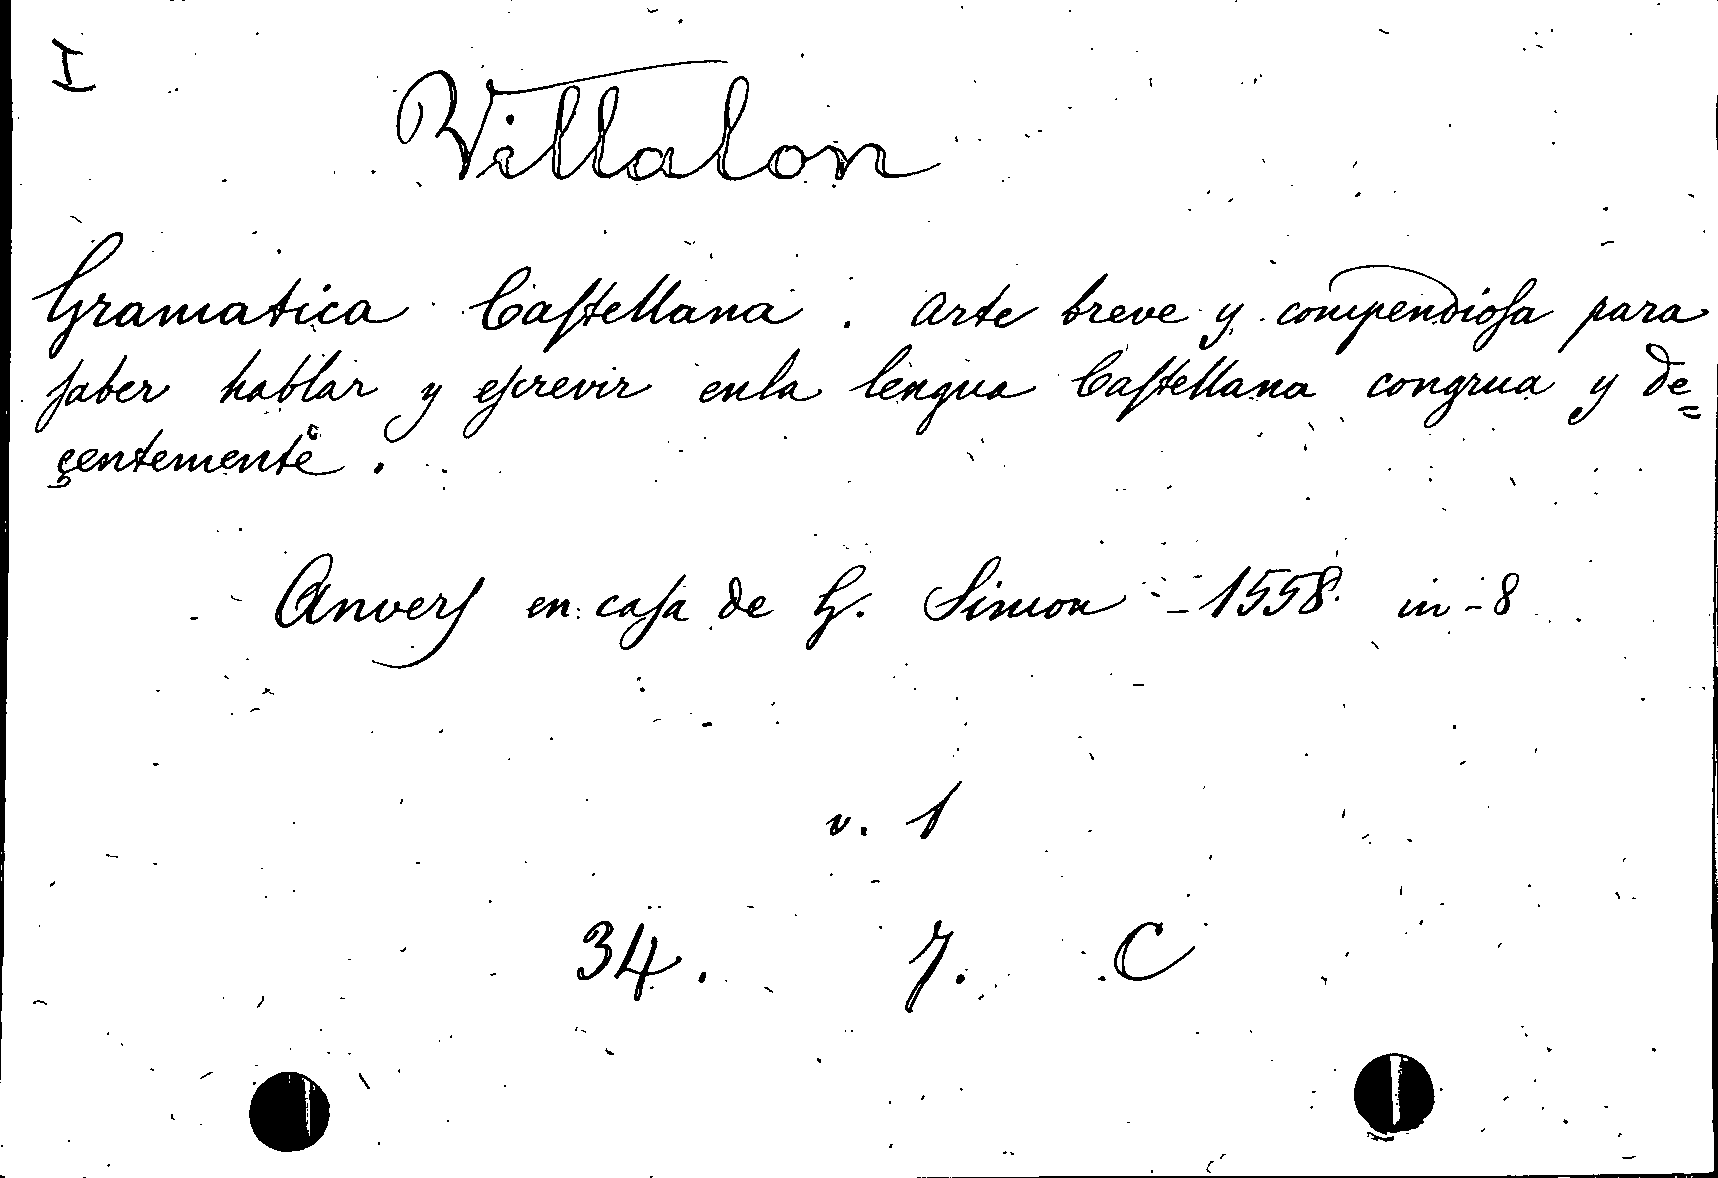 I
Villalon
Gramatica Caſtellana. Arte breve y compendioſa para
ſaber hablar y eſcrevir enla lengua Caſtellana congrua y de=
çentemente.
Anverſ en caſa de G. Simon - 1558. in-8
v. 1
34. 7. C